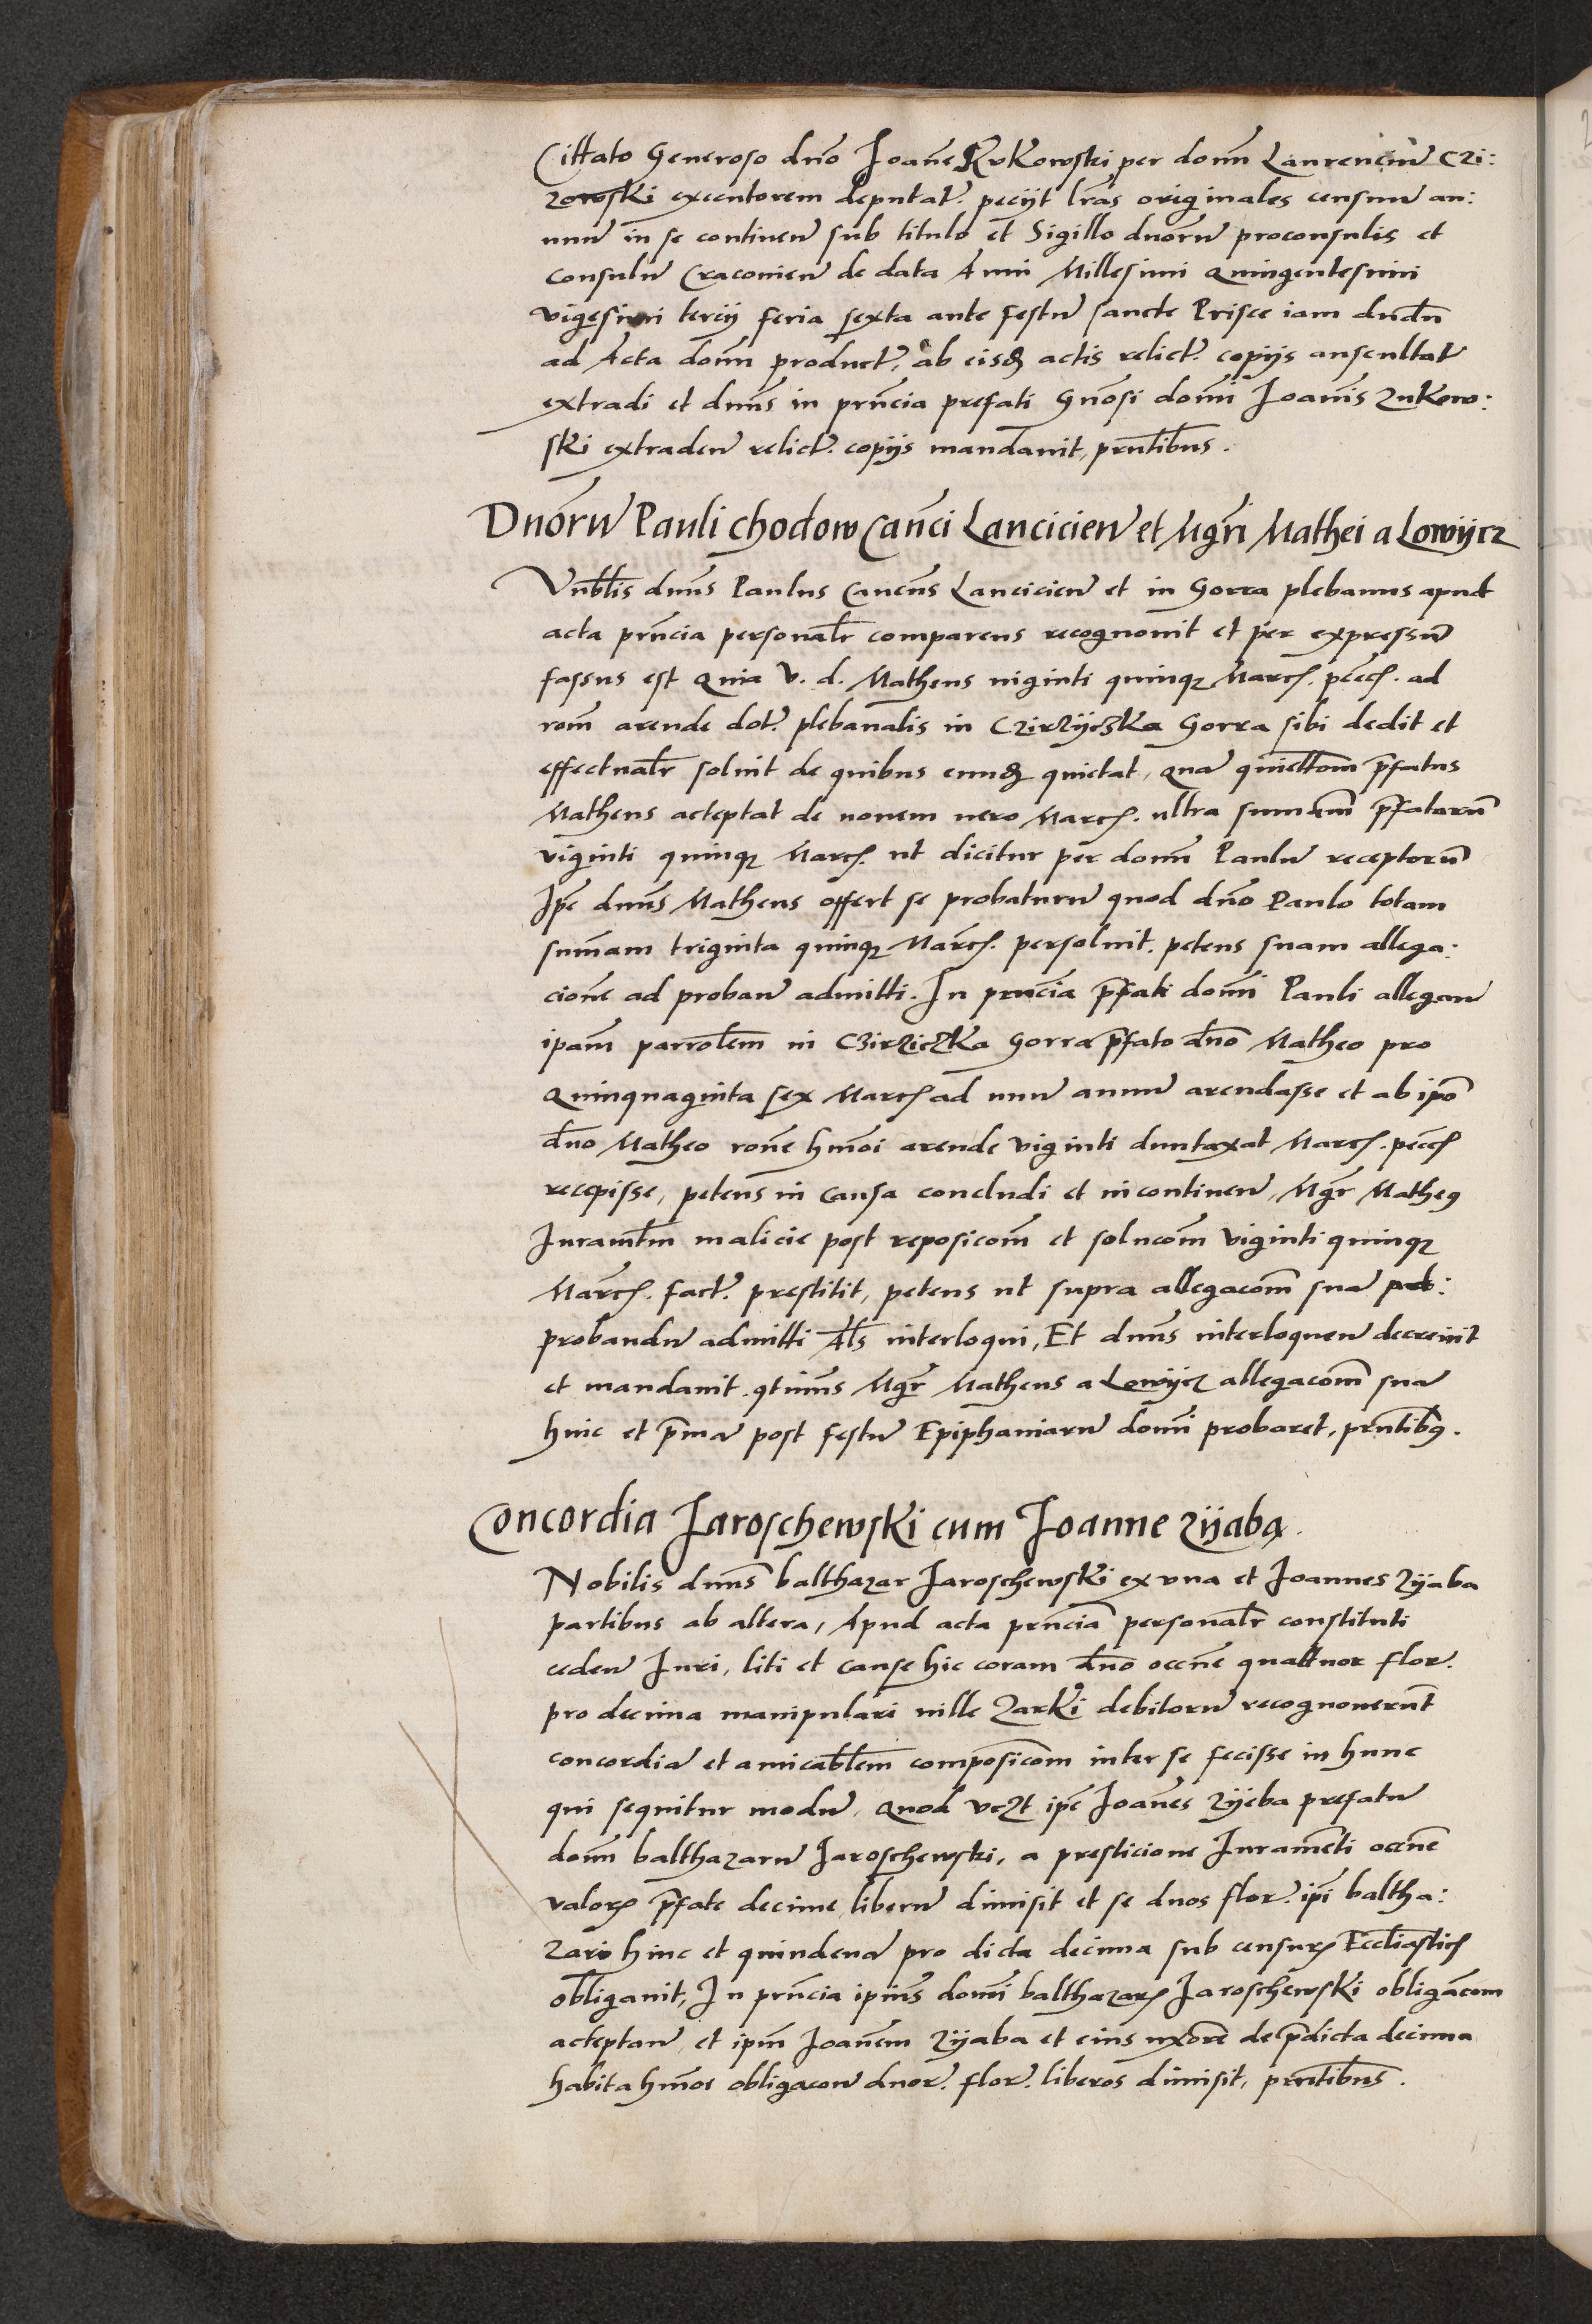 Cittato Generoso dno Joane Rukowski per domn Laurenciu Czi:
zowski executorem deputat. peciyt lras originales censum an:
num in se continen sub titulo et Sigillo dnoru proconsulis et
Consulu Cracovien de data Anni Millesimi Quingentesimi
vigesimi tercij feria sexta ante festu sancte Prisce iam dudu
ad Acta domn product. ab eisd actis relict. copijs auscultat
extradi et dnus in prncia prefati Gnosi domni Joannis Zukow:
ski extraden relict. copijs mandavit, prntibus.
Dnoru Pauli Chodow Canci Lancicien et Mgri Mathei a Lowijcz
Vnblis dnus Paulus Cancus Lancicien et in Gorra plebanus apud
acta prncia personalr comparens recognovit et per expressu
fassus est Quia V. d. Matheus viginti quinqz March. pecch. ad
rom arende dot. plebanalis in Czirzijczka Gorra sibi dedit et
effectualr soluit de quibus eund quietat, qua quiettom pfatus
Matheus acteptat de novem vero March. ultra summam pfatoru
viginti quinqz March. ut dicitur per domn Paulu receptoru
Ipe dnus Matheus offert se probaturu quod dno Paulo totam
summam triginta quinqz March. persoluit. petens suam allega:
cione ad proban admitti. In prncia pfati domni Pauli allegan
ipam parrolem in Czirziczka Gorra pfato dno Matheo pro
Quinquaginta sex March ad unu annu arendasse et ab ipo
dno Matheo rone hmoi arende viginti duntaxat March. pecch
recepisse, petens in causa concludi et incontinen, Mgr Matheus
Juramtm malicie post reposicom et solucom viginti quinqz
March. fact. prestitit, petens ut supra allegacom sua
probandu admitti Als interloqui, Et dnus interloquen decrevit
et mandavit. qtinus Mgr Matheus a Lowijcz allegacom sua
hinc et pma post festu Epiphaniaru domni probaret, prntibus.
Concordia Jaroschewski cum Joanne Zijaba.
Nobilis dnus balthazar Jaroschewski ex vna et Joannes Zijaba
partibus ab altera, Apud acta prncia personalr constituti
ceden Juri, liti et cause hic coram dno occne quattuor flor.
pro decima manipulari ville Zarki debitoru recognoverut
concordia et amicablem composicom inter se fecisse in hunc
qui sequitur modu, Quod vczt ipe Joanes Zijeba prefatu
domn balthazaru Jaroschewski, a presticione Juramenti occne
valorz pfate decime liberu dimisit et se duos flor. ipi baltha:
zari hinc et quindena pro dicta decima sub censurz Eccliastich
obligavit, In prncia ipius domni balthazarz Jaroschewski obligacom
acteptan et ipm Joanem Zijaba et eius uxore de pdicta decima
habita hmoi obligacon duor. flor. liberos dimisit, prntibus.